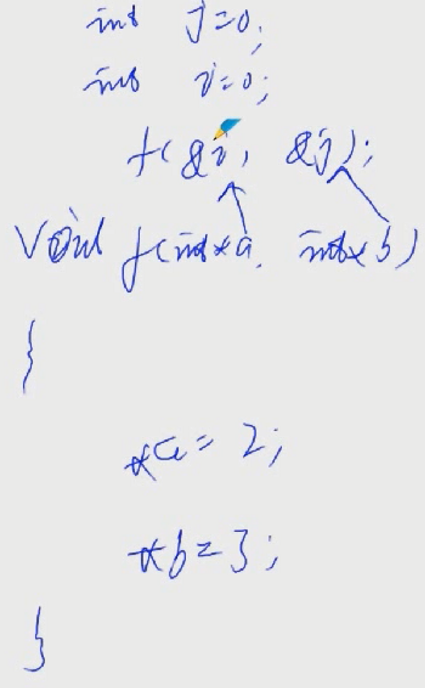 int j=0;
int i=0;
f(&i, &j);
void f(int*a, int*b)
{
*a=2;
*b=3;
}